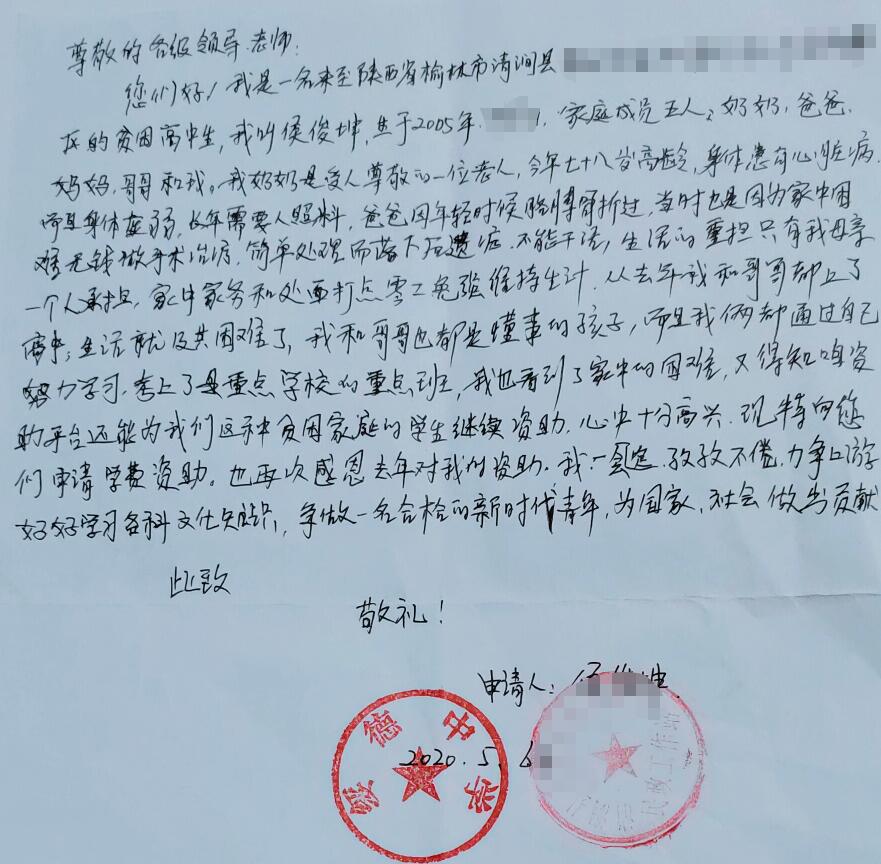 尊敬的各级领导.老师:
您们好!我是一名来至陕西省榆林市清涧县
的贫困高中生,我叫侯俊坤,生于2005年.家庭成员五人:奶奶,爸爸.
妈妈,哥哥和我。我奶奶是受人尊敬的一位老人,今年七十八岁高龄,身体患有心脏病.
而且身体虚弱,长年需要人照料,爸爸因年轻时候胳膊骨折过,当时也是因为家中困
难无钱做手术治疗,简单处理而落下后遗症.不能干活,生活的重担只有我母亲
一个人承担,家中家务和处面打点零工勉强维持生计.从去年我和哥哥都上了
高中,生活就及其困难了,我和哥哥也都是懂事的孩子,而且我俩都通过自己
努力学习.考上了县重点学校的重点班,我也看到了家中的困难,又得知咱资
助平台还能为我们这种贫困家庭的学生继续资助.心中十分高兴.现特向您
们申请学费资助。也再次感恩去年对我的资助。我一定孜孜不倦.力争上游
好好学习各科文化知识,争做一名合格的新时代青年,为国家,社会做出贡献
此致
敬礼!
申请人:
2020.5.6
绥德中学
民政工作站